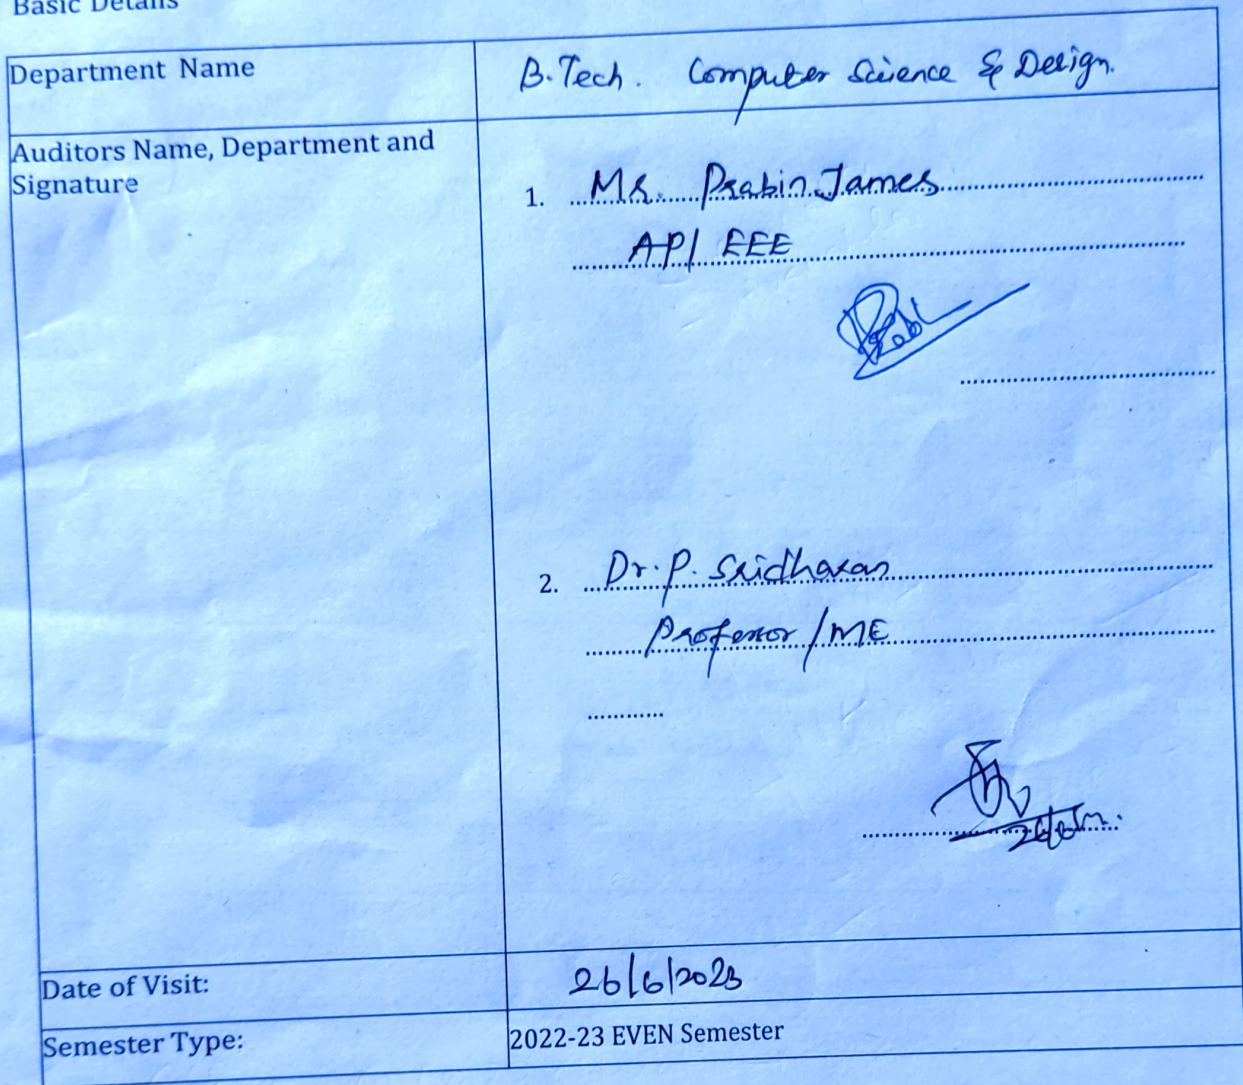 Basic Details
Department Name
B.Tech. Computer Science & Design.
Auditors Name, Department and
Signature
1. Mr. Prabin James
AP/ EEE
2. Dr. P. Sridharan
Professor /ME
Date of Visit:
26/6/2023
Semester Type:
2022-23 EVEN Semester